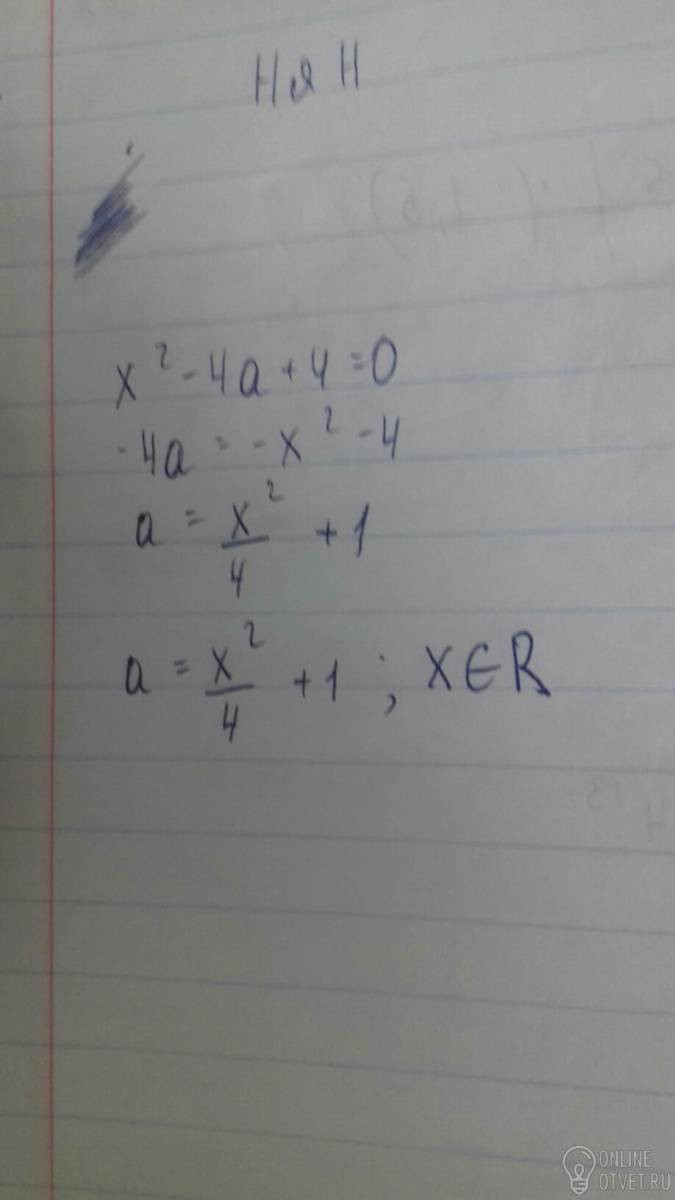 Ня Н
x² - 4a + 4 = 0
-4a = -x² - 4
a = x²/4 + 1
a = x²/4 + 1 ; X∈R
ONLINE
OTVET.RU